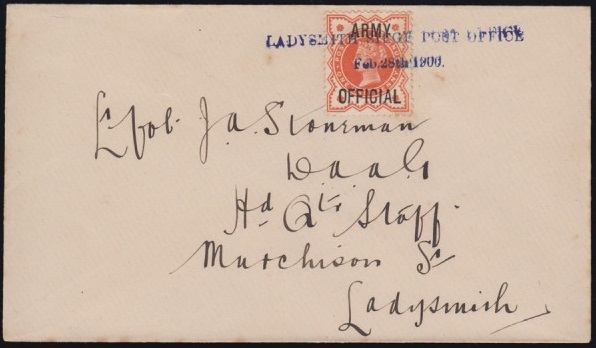 ARMY
LADYSMITH SIEGE POST OFFICE
Feb. 28th 1900.
OFFICIAL
Lt Col. J. A. Stoneman
D.a.a.G
Hd Qtr Staff.
Murchison St
Ladysmith